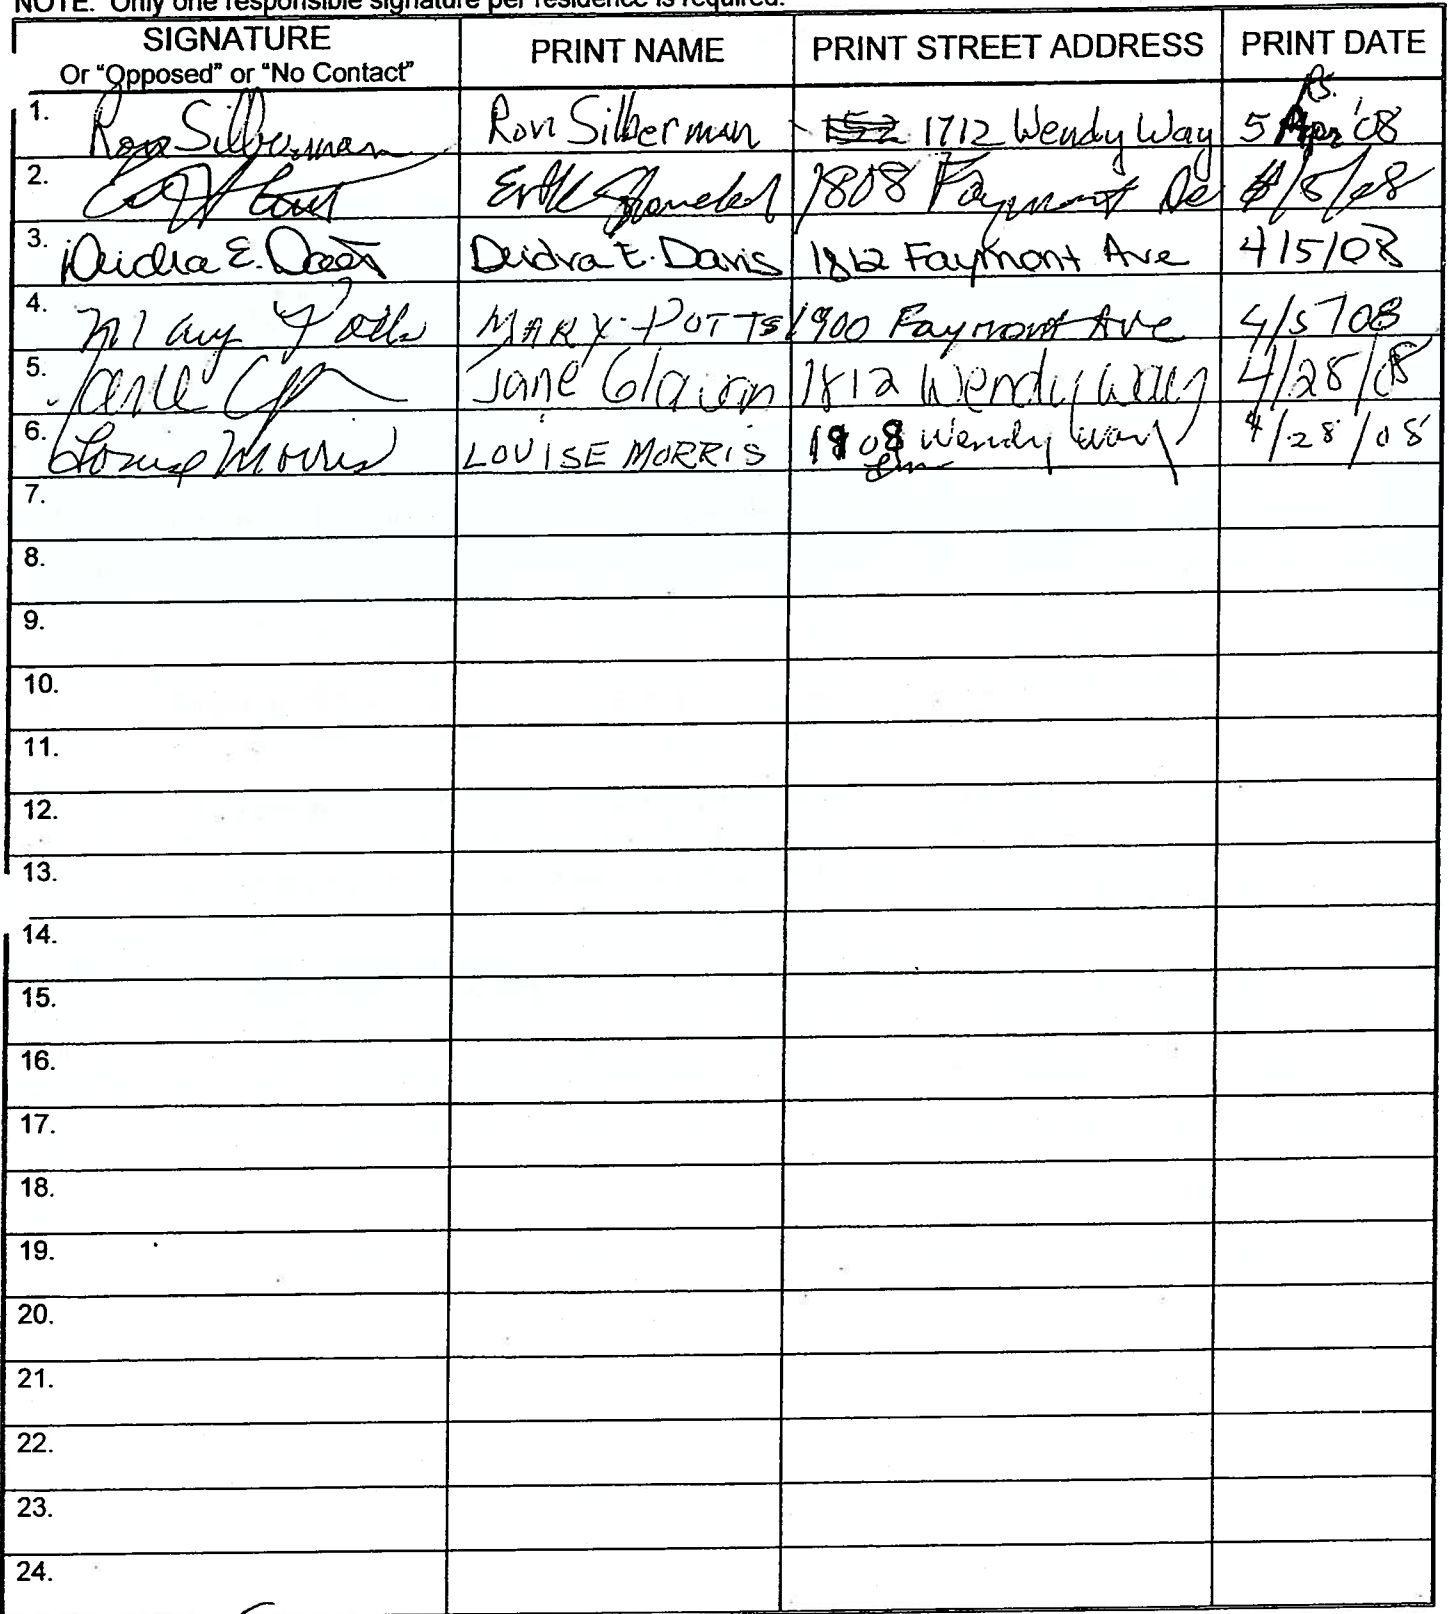 NOTE: Only one responsible signature per residence is required.
SIGNATURE PRINT NAME PRINT STREET ADDRESS PRINT DATE
Or "Opposed" or "No Contact"
RS.
1. Ron Silberman Ron Silberman 1712 Wendy Way 5 Apr '08
2. Erik 1808 Faymont 4/5/08
3. Deidra E. Davis Deidra E. Davis 1812 Faymont Ave 4/5/08
4. Mary Potts MARY POTTS 1900 Faymont Ave 4/5/08
5. Jane Jane 1812 Wendy Way 4/28/08
6. Louise Morris LOUISE MORRIS 1808 Wendy Way 4/28/08
lm
7.
8.
9.
10.
11.
12.
13.
14.
15.
16.
17.
18.
19.
20.
21.
22.
23.
24.